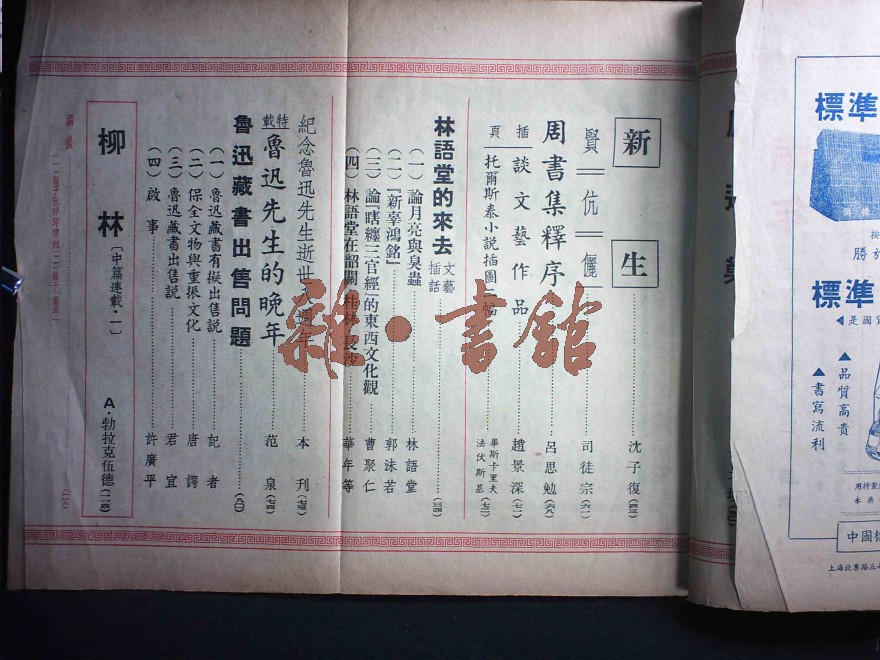 新生……沈子復(四三)
賢伉儷……司徒宗(六一)
周書集釋序……呂思勉(六八)
談文藝作品……趙景深(七一)
插頁 托爾斯泰小說插圖二幅……畢斯卡里夫 法伏斯基(七二)
林語堂的來去 文藝插話……(三四)
(一)論月亮與臭蟲……林語堂
(二)『新辜鴻銘』……郭沫若
(三)論「瞎纏三官經」的東西文化觀……曹聚仁
(四)林語堂在韶關 桂林 長沙……華年等
紀念魯迅先生逝世八週年……本刊(七三)
特載 魯迅先生的晚年……范泉(七四)
魯迅藏書出售問題……(八〇)
(一)魯迅藏書有擬出售說……記者
(二)保全文物與重振文化……唐諤
(三)魯迅藏書出售說……君宜
(四)啟事……許廣平
柳林〔中篇連載・一〕 A・勃拉克伍德(一一四)
編後
雜・書館
標準
按
標準
◀是國貨
▲品質高貴
▲書寫流利
上海北京路五